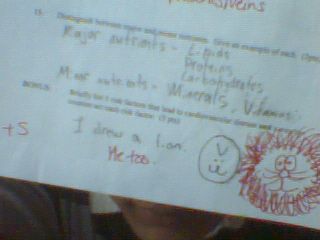 veins
13. Distinguish between major and minor nutrients. Give an example of each.
Major nutrients - Lipids
Proteins
Carbohydrates
Minor nutrients - Minerals, Vitamins
BONUS: Briefly list 5 risk factors that lead to cardiovascular disease and
each risk factor. (5 pts)
+5
I drew a lion.
Me too.